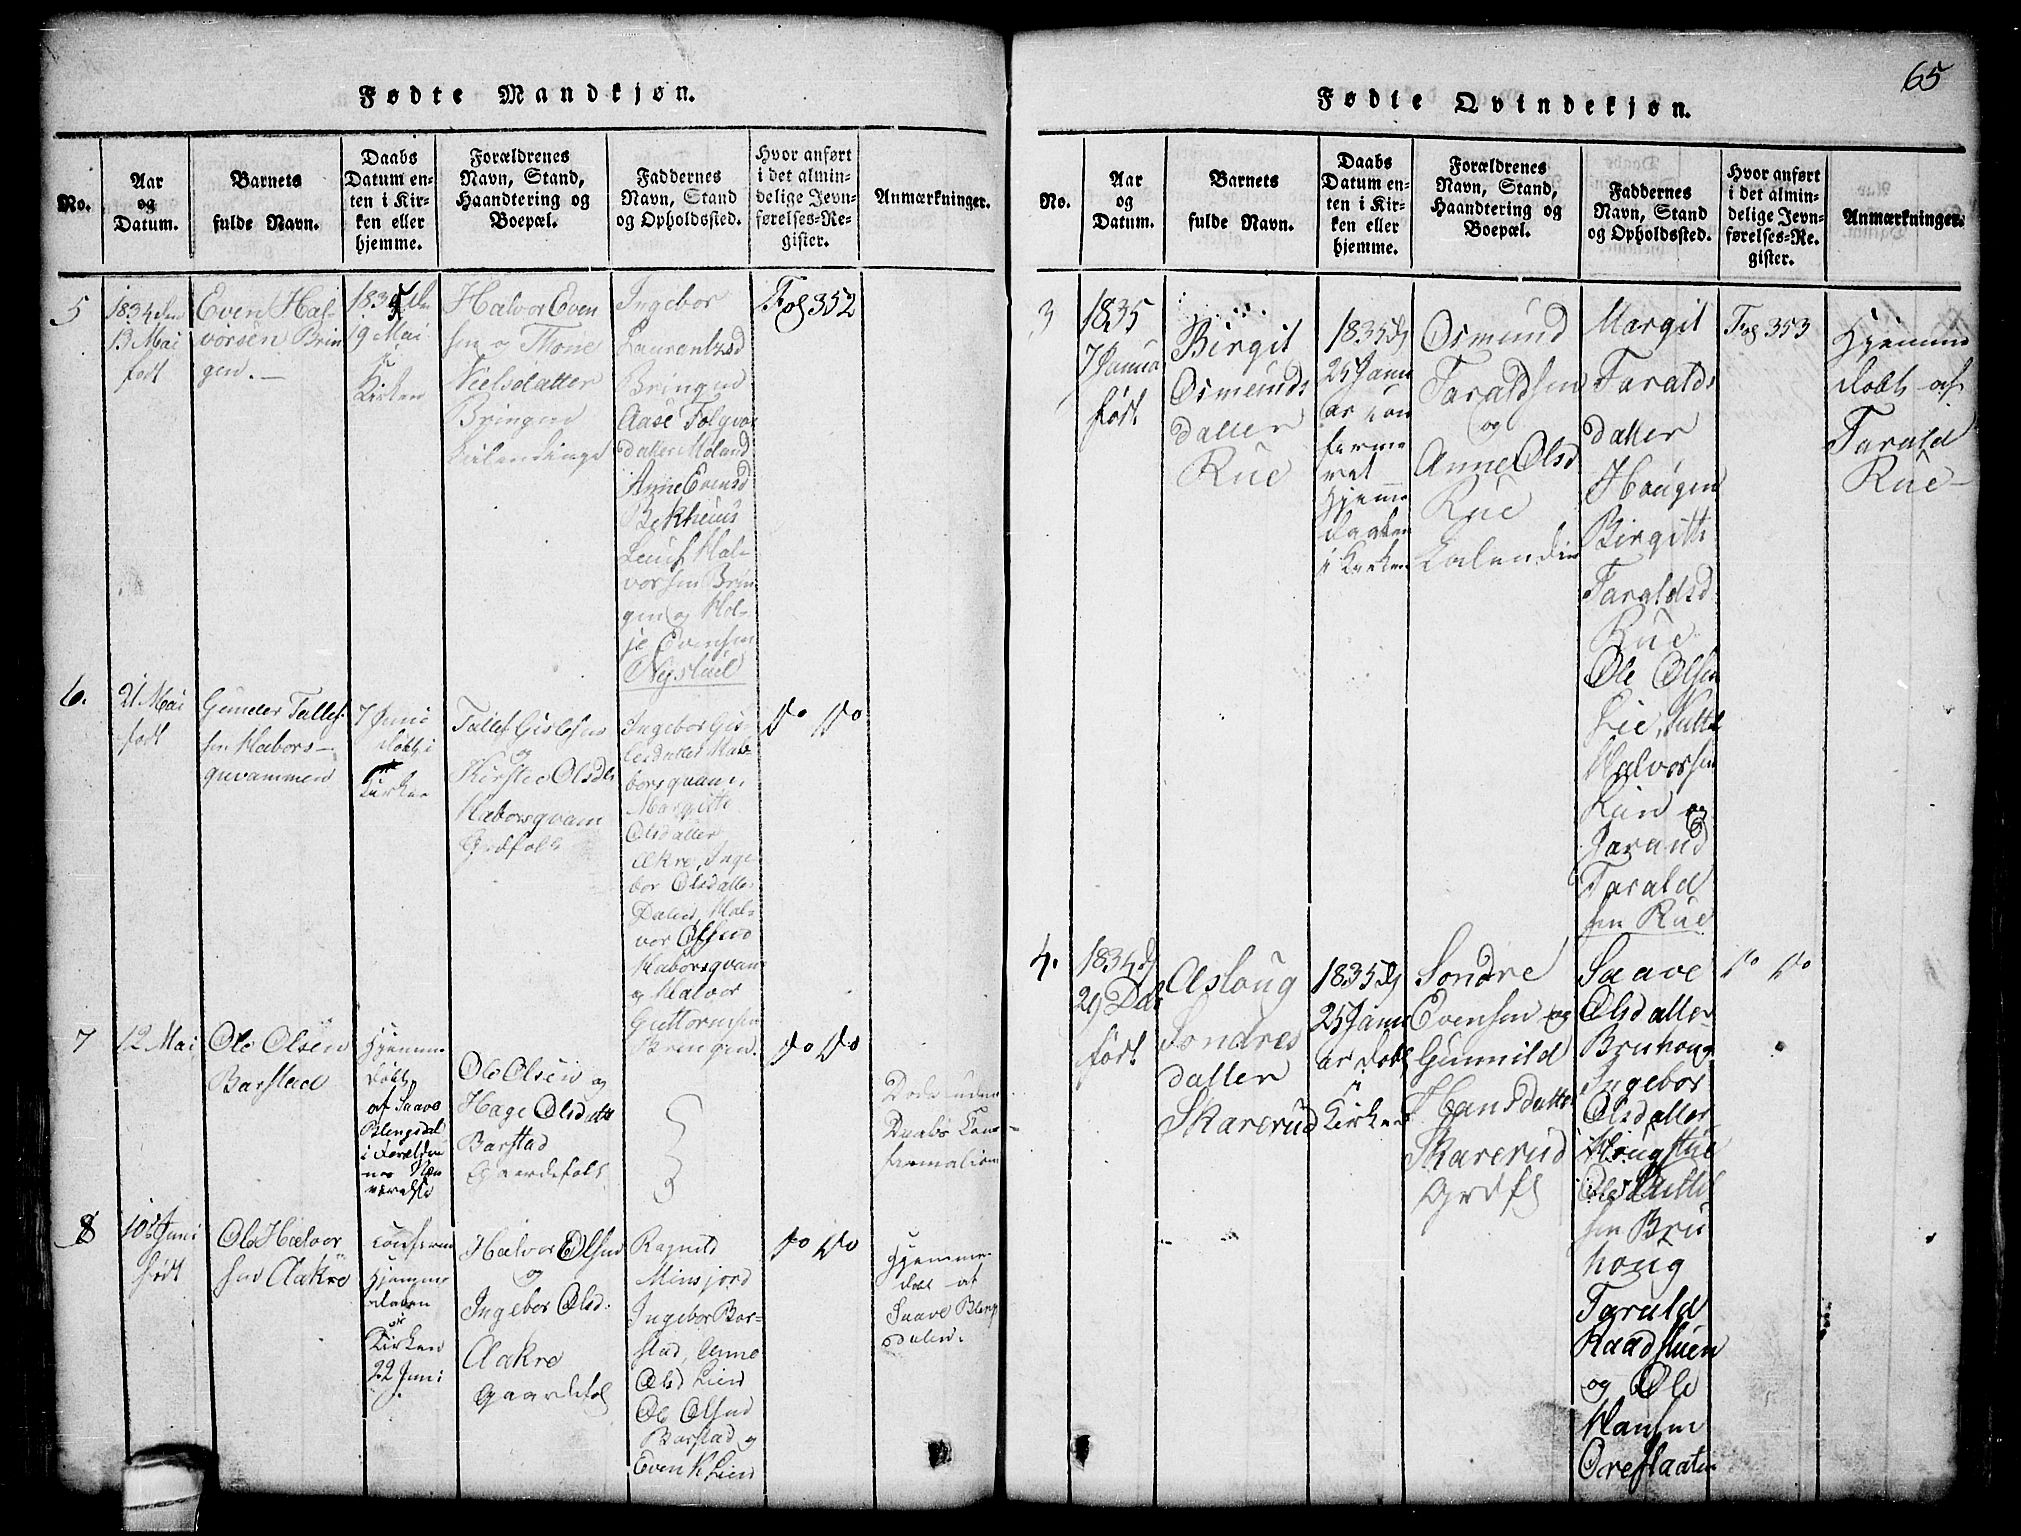 65
Fødte Mandkjøn.
No.
Aar
og
Datum.
Barnets
fulde Navn.
Daabs
Datum en-
ten i Kir-
ken eller
hjemme.
Forældrenes
Navn, Stand,
Haandtering og
Boepæl.
Faddernes
Navn, Stand
og Opholdssted.
Hvor anført
i det almin-
delige Jevn-
førelses-Re-
gister.
Anmærkninger.
5
1834 den
13 Mai
født
Even Hal-
vorsen Brin
gen.
19 Mai
i
Kirken
Halvor Even
sen og Thone
Nielsdatter
Bringen
Ingebor
Laurentzsd
Bringen
Aase Folqvar
datter Moland
Anne Evensd
Bekhuus
Leuf Hal-
vorsen Brin
gen og Hol-
je Evensen
Nystuel
Fog 352
6.
21 Mai
født
Gunder Tallef
sen Habors-
quvammen
7 Juni
døbt i
Kirken
Tallef Gislesen
og
Kirstie Olsdr
Haborsqvam
Grdfolk
Ingebor Gis-
lesdatter Hab-
borsqvam,
Margitte
Olsdatter
Akre, Inge
bor Olsdatter
Dalen, Hal-
vor Olsen
Haborsqvam
og Halvor
Guttormsen
Bringen.
do do
7
12 Mai
Ole Olsen
Barstad
Hjemme
døbt
af Saave
Blengsdal
i Foreldre
nes Nær
værelse
Ole Olsen og
Hage Olsdatt
Barstad
Gaardefolk
do do
Døde uden
Daabs Con-
firmation
8
10de Juni
født
Ole Halvor
sen Aakre
Hjemme
daaben
i
Kirken
22 Juni
Halvor Olsen
og
Ingebor Olsd.
Aakre
Gaardefol
Ragnild
Minsjord
Ingebor Bar-
stad, Anne
Olsd Lien
Ole Olsen
Barstad og
Even K Lien
do do
Hjemme
døbt af
Saave Bleng
sdalen.
Fødte Qvindekjøn.
No.
Aar
og
Datum.
Barnets
fulde Navn.
Daabs
Datum en-
ten i Kir-
ken eller
hjemme.
Forældrenes
Navn, Stand,
Haandtering og
Boepæl.
Faddernes
Navn, Stand
og Opholdssted.
Hvor anført
i det almin-
delige Jevn-
førelses-Re-
gister.
Anmærkninger.
3
1835
7 Janua
født
Birgit
Osmunds
datter
Rue
1835 d
25 Janu
ar con
ferme
ret
Hjemme
daaben
i Kirken
Osmund
Taraldsen
og
Anne Olsd
Rue
Margit
Taralds
datter
Haugen
Birgitte
Taraldsd
Rue
Ole Olsen
Lie,
Halvorsen
Lien og
Jarand
Tarald
sen Rue
Fog 353
Hjemme
døbt af
Tarald
Rue
4.
1834 d
29 Des
født
Aslaug
Sondres
datter
Skarerud
1835 d
25 Janu
ar døbt
i
Kirken
Sondre
Evensen og
Gunnild
Hansdatter
Skarerud
Grdfl
Saave
Olsdatter
Bruhoug
Ingebor
Olsdatter
Hougstue
Ole Kittel
sen Bru
houg
Tarald
Raadstuen
og Ole
Hansen
Oreflaaten
do do